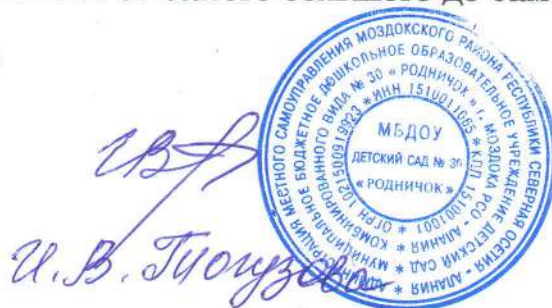 АДМИНИСТРАЦИЯ МЕСТНОГО САМОУПРАВЛЕНИЯ МОЗДОКСКОГО РАЙОНА РЕСПУБЛИКИ СЕВЕРНАЯ ОСЕТИЯ - АЛАНИЯ *
МУНИЦИПАЛЬНОЕ БЮДЖЕТНОЕ ДОШКОЛЬНОЕ ОБРАЗОВАТЕЛЬНОЕ УЧРЕЖДЕНИЕ ДЕТСКИЙ САД *
КОМБИНИРОВАННОГО ВИДА № 30 « РОДНИЧОК » г. МОЗДОКА РСО - АЛАНИЯ *
* ОГРН 1021500919923 * ИНН 1510011065 * КПП 151001001
МБДОУ
ДЕТСКИЙ САД № 30
« РОДНИЧОК »
И. В.